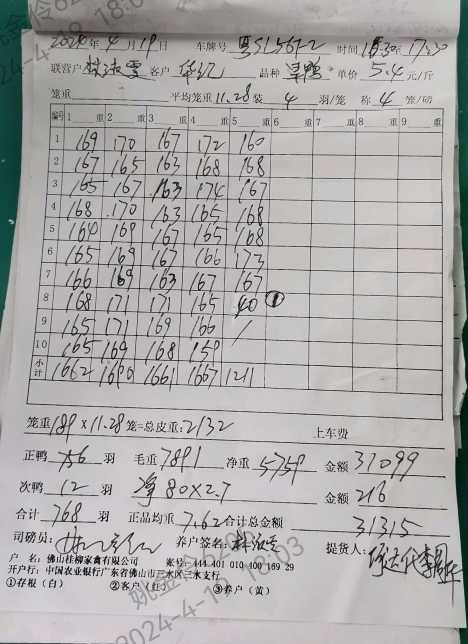 2024年4月19日 车牌号 粤SL5672 时间
联营户 客户 华记 品种 旱鸭 单价 5.4元/斤
笼重 平均笼重11.28装 4 羽/笼 称 4 笼/磅
编号 1 重 2 重 3 重 4 重 5 重 6 重 7 重 8 重 9 重
1 169 170 167 172 160
2 167 165 163 168 168
3 165 167 163 174 167
4 168 170 163 165 168
5 164 169 167 165 168
6 165 169 167 166 173
7 166 169 163 167 167
8 168 171 171 165 40 ①
9 165 171 169 166 /
10 165 169 168 159
小计 1662 1690 1661 1667 1211
笼重 189×11.28 笼=总皮重:2132 上车费
正鸭 756 羽 毛重 7891 净重 5759 金额 31099
次鸭 12 羽 净80×2.7 金额 216
合计 768 羽 正品均重 7.62 合计总金额 31315
司磅员: 养户签名: 提货人:
户 名: 佛山桂柳家禽有限公司 账号: 444 401 010 400 169 29
开户行: 中国农业银行广东省佛山市三水区三水支行
①存根(白) ②客户(红) ③养户(黄)